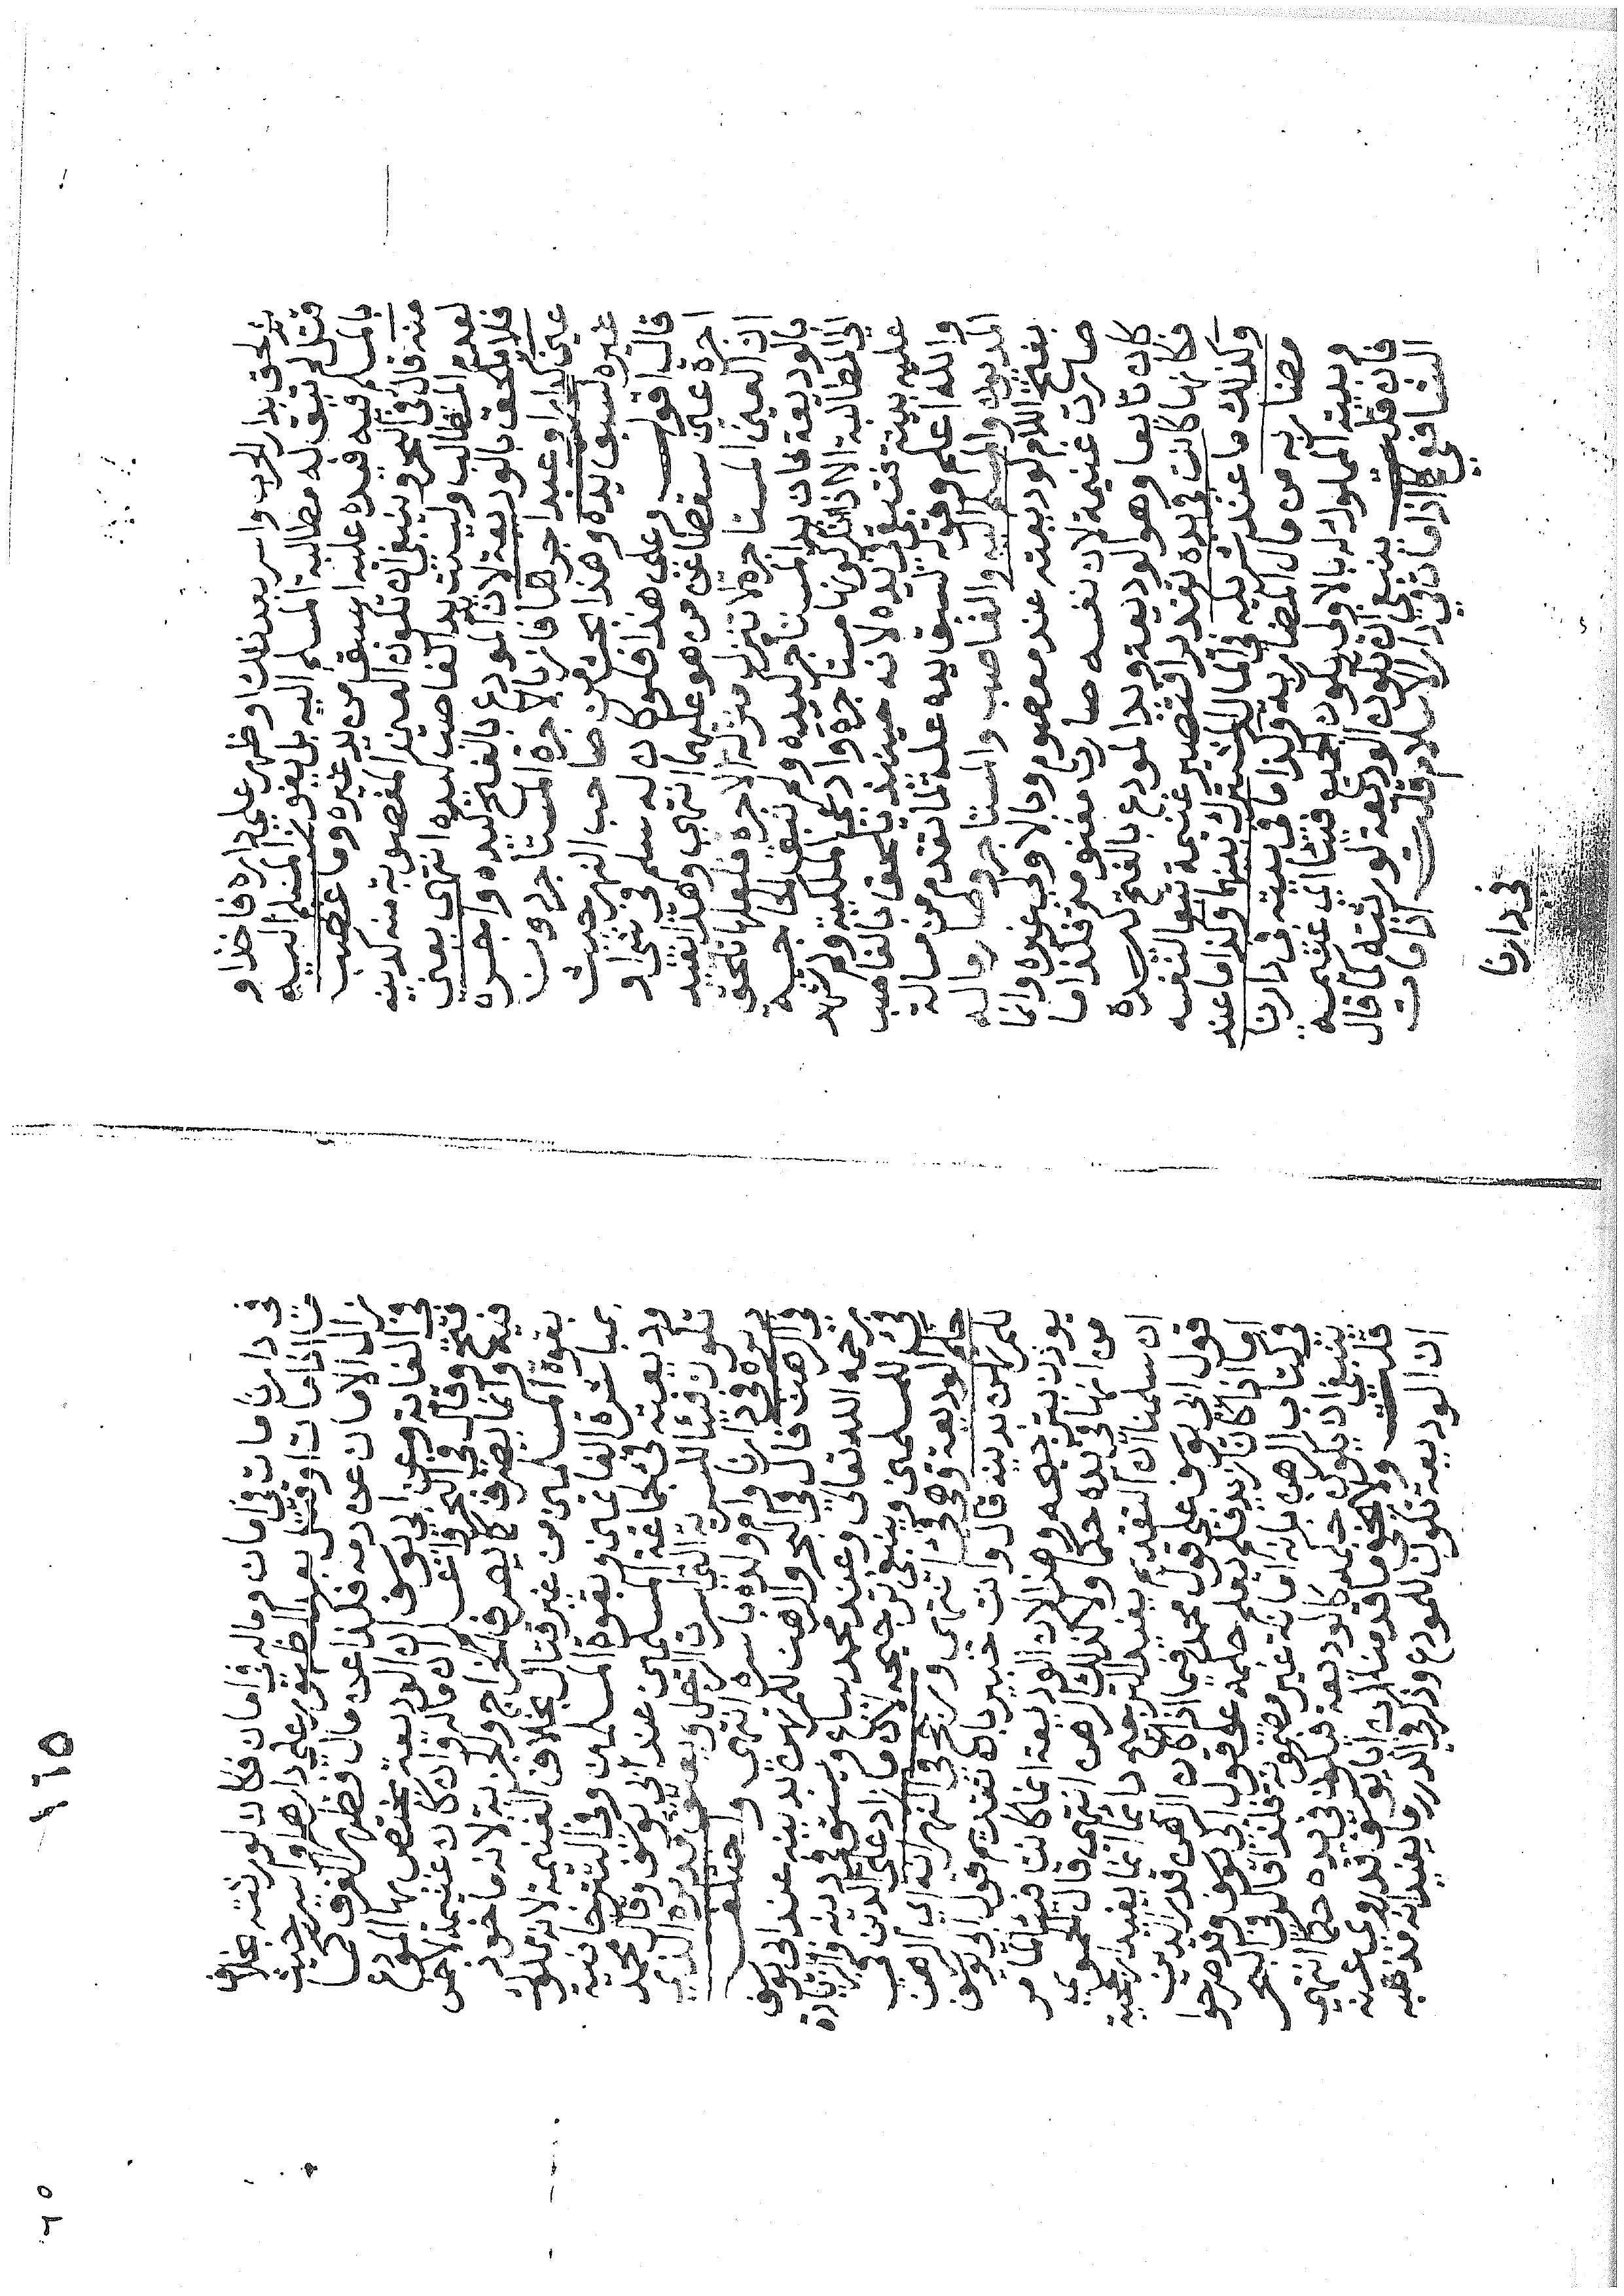 يلحق بدار الحرب واسر بعد ذلك او ظهر علي داره فاخذ او
قتل لم يبق له مطالبة المسلم اليه بل يفوز المسلم اليه
بالمسلم فيه فيده عليه اسبق من يد غيره وما غصب
منه قال في البحر وينبغي ان تكون العين المغصوبة منه كدينه
لعدم المطالب وليست يد الغاصب كيده انتهي يعني
فلا تلحق بالوديعة لان يد المودع بالفتح كيده واجرة
عين كدار وعبد اجرها فاز بالاجرة المستاجر دون
غيره لسبق يده وهذا بحث من صاحب النهر حيث
قال اقول وعلي هذا فلو كان له سلم في شي او
اجرة علي سقطا عمن هو عليهما انتهي وهذا يفيد
ان العين المستاجرة لا تنزل منزلة الاجرة فلعلها تلحق
بالوديعة فان يد المستاجر كيده ولم تنقض الحاجة
الي المطالبة الا اذا انكر كونها مستاجرة وادعي الملكية ولم تشهد
عليه بينة فتبقي في يده لانه حينئذ يلحق بالغاصب
والله اعلم وقوله لسبق يده علة لما تقدم من مسالة
المديون والمسلم اليه والغاصب والمستاجر وصار ماله
بفتح اللام كوديعته عند معصوم وبالاولي غيره وانما
صارت غنيمة لان نفسه صارت مغنومة فكذا ما
كان تابعا وهو الوديعة ويد المودع بالفتح كيده
فكانها كانت في يده تقديرا فتصير غنيمة تبعا لنفسه
وكذلك ما عند شريكه في المال المشترك بينهما وكذا ما عند
مضاربه من مال المضاربة وكذا ما في بيته في دارنا
وبيته المملوك له بالاولي يكون الجميع فيئا اي غنيمة
فان قلت ينبغي ان تكون الوديعة لورثته كما قال
الشافعي كما اذا مات في دار الاسلام قلت اذا مات
في دارنا
١٦٥
في دارنا مات في امان وماله في امان فكان لورثته بخلاف
ما اذا مات او قتل بعد الظهور علي دارهم واسره حيث
زال الامان عن دمه فكذا عن مال فظهر الفرق كما
في الغاية وعن ابي يوسف ان الوديعة تختص بها المودع
فتح وقال في البحر واعلم ان ماله وان كان غنيمة لا خمس
فيه وانما يصرف كما يصرف الخراج والجزية لانه ماخوذ
بقوة المسلمين من غير قتال بخلاف الغنيمة لانه مملوك
بمباشرة الغانمين وبقوة المسلمين وفي التتارخانية
وديعته في جماعة المسلمين عند ابي يوسف وقال محمد
تكون فيئا للسرية التي اسرت الرجل ويعتق مدبره الذي
دبره في دارنا وام ولده باسره انتهي واختلف
في الرهن قال في البحر والرهن للمرتهن بدينه عند ابي يوسف
رحمه الله تعالي وعند محمد يباع ويستوفي دينه والزيادة
في للمسلمين وينبغي ترجيحه لان ما زاد علي الدين في
حكم الوديعة وهي فئ انتهي ورجح في النهر انه اي الرهن
للمرتهن بدينه قال وانت خبير بان تقديم قول ابي يوسف
يوذن بترجيحه وهذا لان الوديعة انما كانت فيئا لما مر
من انها في يده حكما ولا كذلك الرهن انتهي قال الحموي
ان سلمنا ان التقديم يفيد الترجيح دائما انما يفيد ارجحية
قول ابي يوسف علي قول محمد فيما اذا كان الرهن قدر الدين
اما اذا كان ازيد فلم يعلم حكمه علي قول ابي يوسف وقد صرحوا
في كتاب الرهن بانه امانة غير مضمونة فلذا قال في البحر
ينبغي ان يكون حكمه كالوديعة فيكون في يده حكما انتهي
قلت ولا يخفي ما قدمنا ان ابا يوسف قد روي عنه
ان الوديعة تكون للمودع وذكر في الدرر ما يفيد انه مذهبه